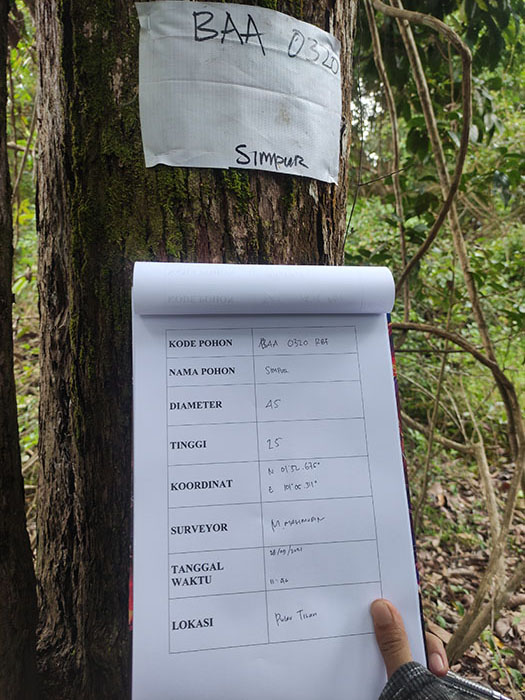 BAA 0320
SIMPUR
KODE POHON BAA 0320 RBF
NAMA POHON SIMPUR
DIAMETER 45
TINGGI 25
KOORDINAT N 01°52.675"
E 101°00.311"
SURVEYOR
TANGGAL
WAKTU
LOKASI Pulau